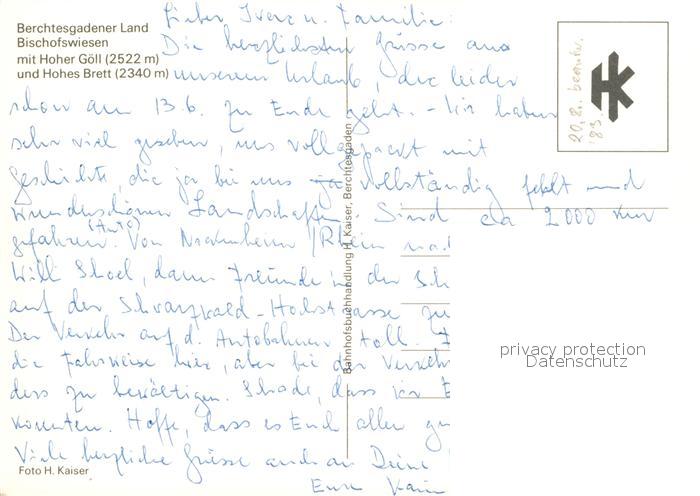 Berchtesgadener Land
Bischofswiesen
mit Hoher Göll (2522 m)
und Hohes Brett (2340 m)
Lieber u. Familie:
Die herzlichsten Grüsse aus
unserem Urlaub, der leider
schon am 13.6. zu Ende geht. - Wir haben
sehr viel gesehen, uns vollgepackt mit
Geschichte, die ja bei uns ja vollständig fehlt und
wunderschönen Landschaften. Sind ca 2000 km
(Auto)
gefahren. Von Nackenheim /Rhein
dann Freunde in der Sch
auf der Schwarzwald-Hochstrasse zu
Der Verkehr auf d. Autobahnen toll.
die Fahrweise hier, aber bei der Verkehrs
dess zu bewältigen. Schade, dass wir E
konnten. Hoffe, dass es Euch allen gu
Viele herzliche Grüsse auch an Deine
Eure
Foto H. Kaiser
Bahnhofsbuchhandlung H. Kaiser, Berchtesgaden
20.8. beantw.
'83
HK
privacy protection
Datenschutz